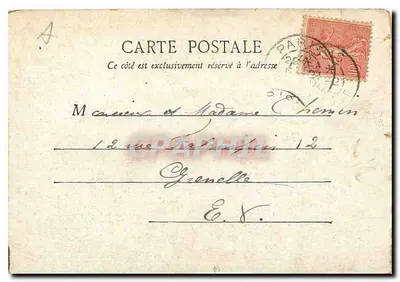 CARTE POSTALE
Ce côté est exclusivement réservé à l'adresse
PARIS
Monsieur et Madame Chemin
12 rue 12
Grenelle
E. V.